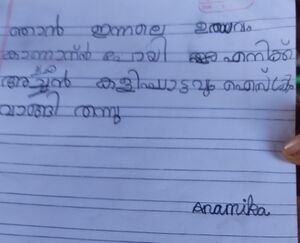 ഞാൻ ഇന്നലെ ഉത്സവം
കാണാൻ പോയി എനിക്ക്
അച്ഛൻ കളിപ്പാട്ടവും ഐസ്ക്രീം
വാങ്ങി തന്നു
Anamika